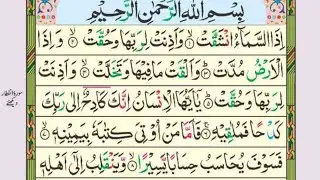 بِسْمِ اللهِ الرَّحْمٰنِ الرَّحِيْمِ
اِذَا السَّمَآءُ انْشَقَّتْ ۙ وَاَذِنَتْ لِرَبِّهَا وَحُقَّتْ ۙ وَاِذَا
الْاَرْضُ مُدَّتْ ۙ وَاَلْقَتْ مَا فِيْهَا وَتَخَلَّتْ ۙ وَاَذِنَتْ
لِرَبِّهَا وَحُقَّتْ ۙ يٰۤاَيُّهَا الْاِنْسَانُ اِنَّكَ كَادِحٌ اِلٰى رَبِّكَ
كَدْحًا فَمُلٰقِيْهِ ۚ فَاَمَّا مَنْ اُوْتِيَ كِتٰبَهٗ بِيَمِيْنِهٖ ۙ
فَسَوْفَ يُحَاسَبُ حِسَابًا يَّسِيْرًا ۙ وَّيَنْقَلِبُ اِلٰۤى اَهْلِهٖ